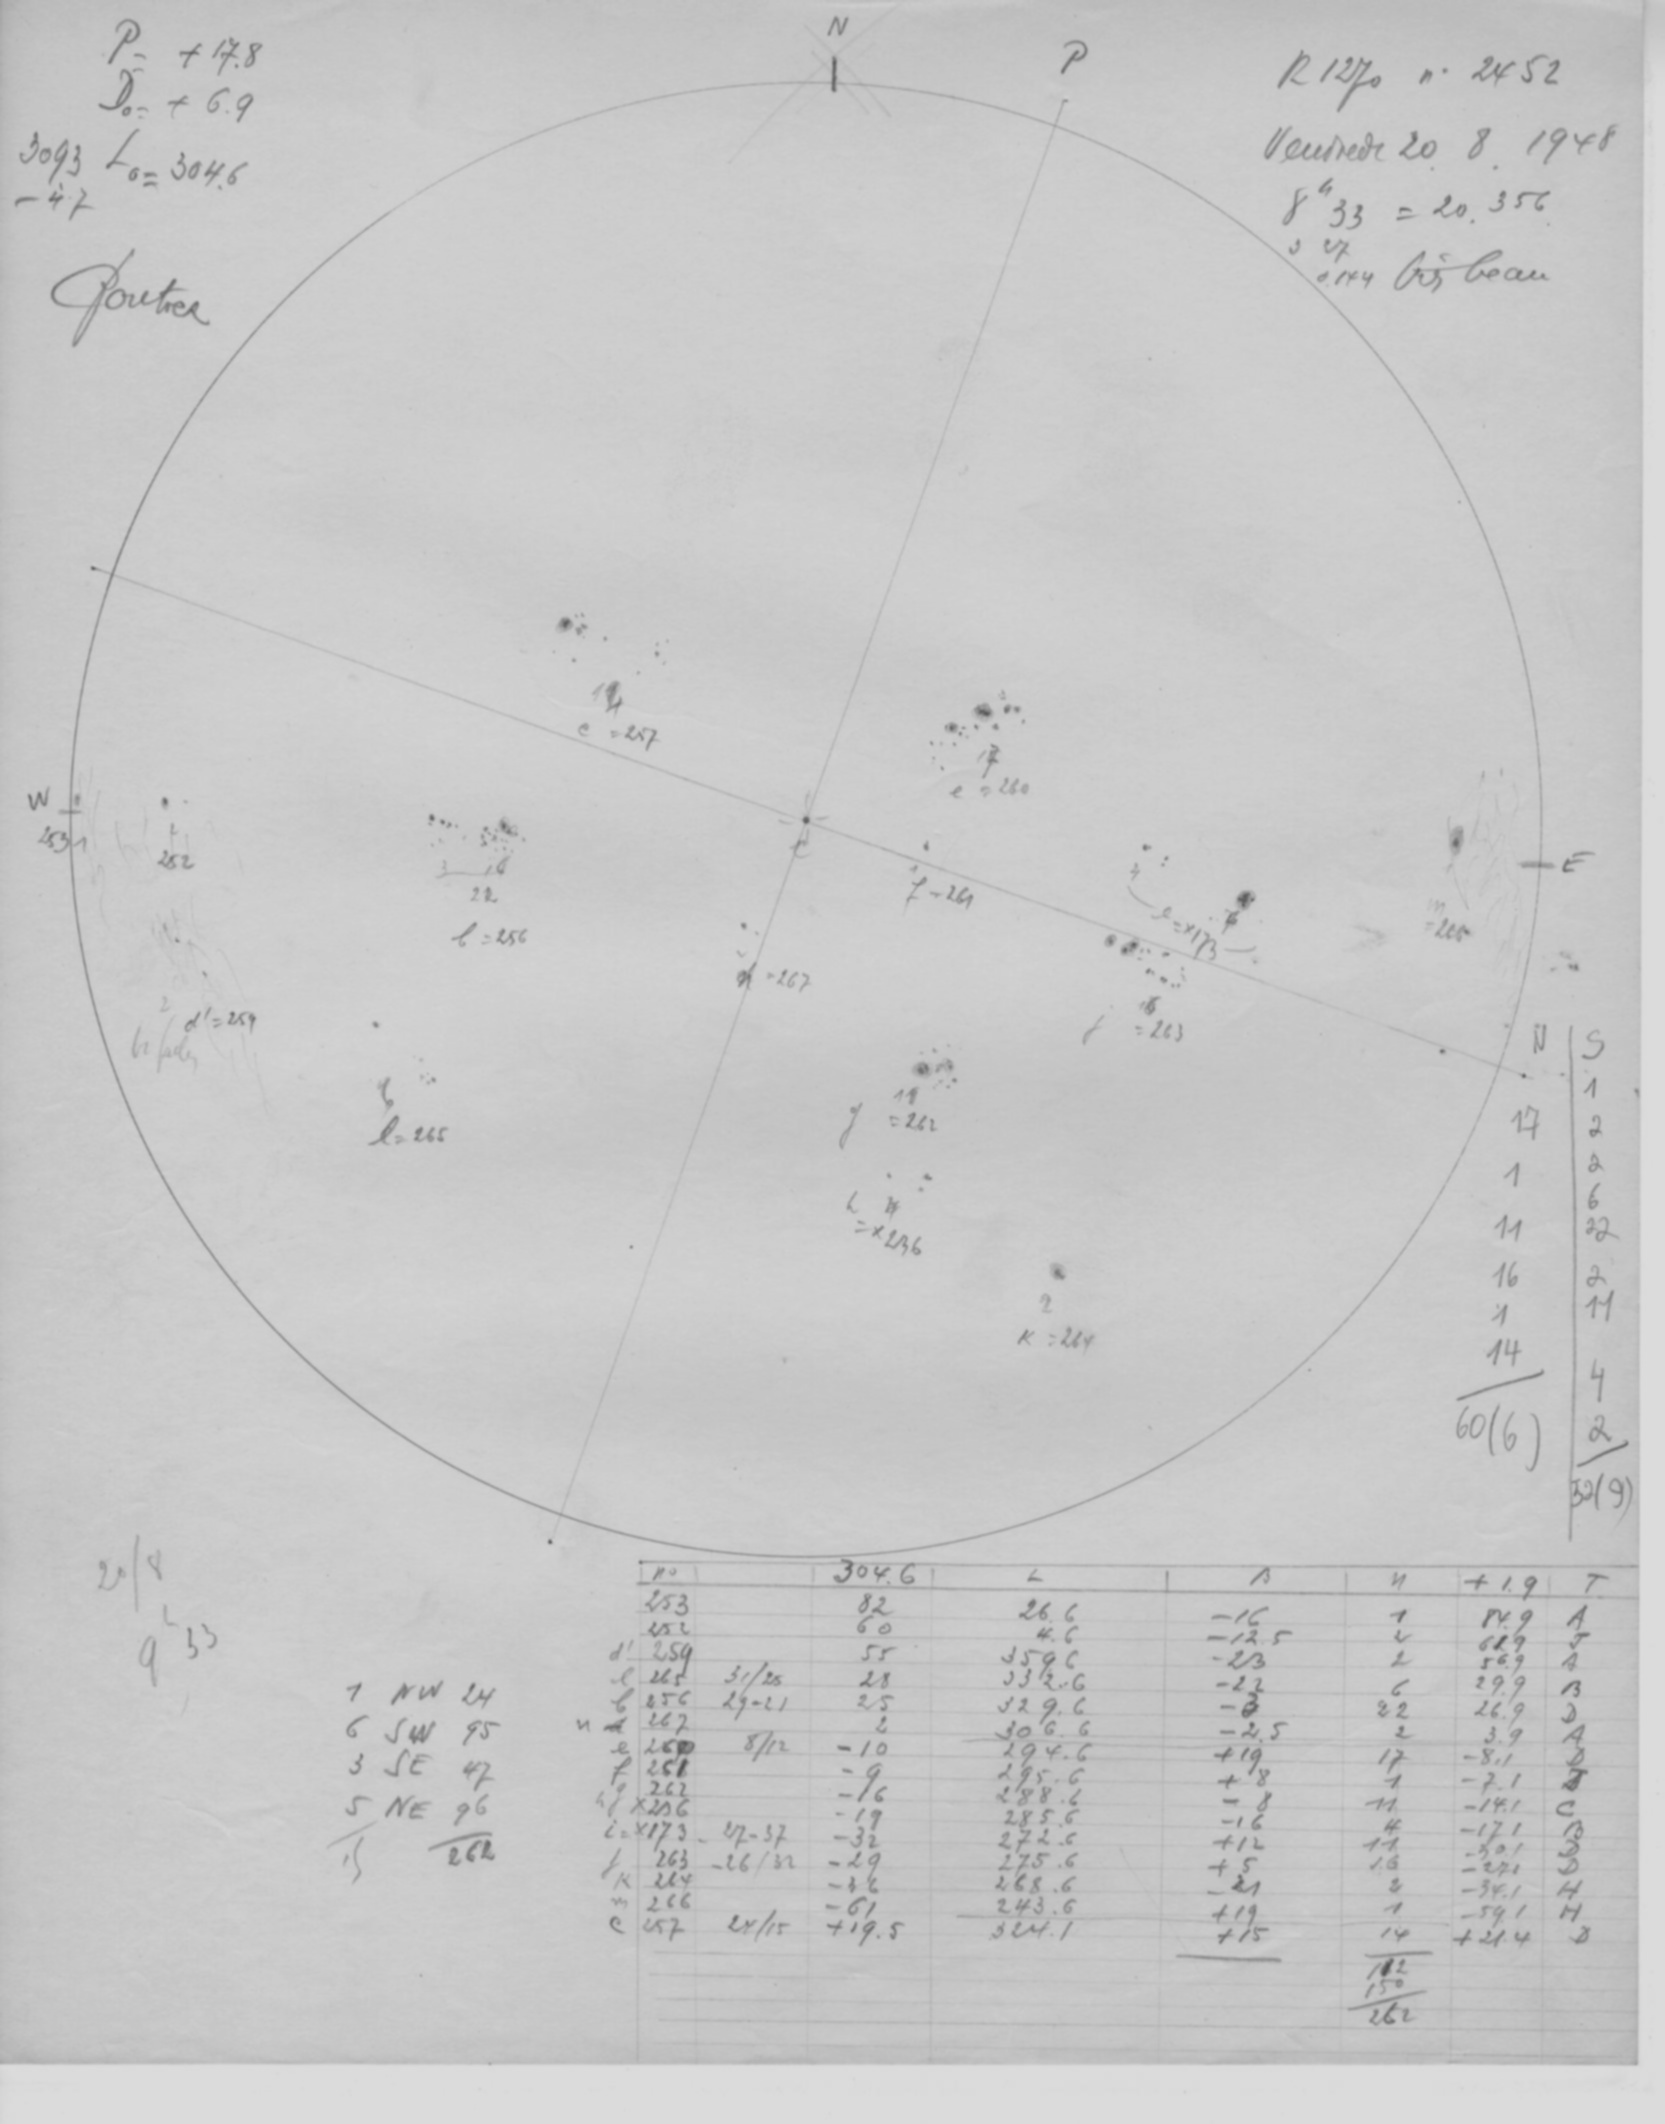 P= +17.8
D₀= +6.9
3093 L₀= 304.6
-4.7
N
P
n° 2452
20. 8. 1948
8ʰ33 = 20.356
0.144 très beau
c =257
17
e =260
W
253 1
252
22
b =256
f =261
E
=x173
=267
d'=259
j =263
l=265
g =262
=x236
2
k =264
N S
1
17 2
1 2
6
11 22
16 2
1 11
14 4
60(6) 2
52(9)
20/8
9ʰ33
1 NW 24
6 SW 95
3 SE 47
5 NE 96
15 262
no 304.6 L B n +1.9 T
253 82 26.6 -16 1 84.9 A
252 60 4.6 -12.5 2
d' 259 55 359.6 -23 2 56.9 A
l 265 31/25 28 332.6 -22 6 29.9 B
b 256 29-21 25 329.6 22 26.9 D
n 267 2 306.6 -2.5 2 3.9 A
e 260 8/12 -10 294.6 +19 17 -8.1 D
f 261 -9 295.6 +8 1 -7.1
g 262 -16 288.6 -8 11 -14.1 C
x236 -19 285.6 -16 4 -17.1 B
i=x173 -27-37 -32 272.6 +12 11 -30.1 D
j 263 -26/32 -29 275.6 +5 16 -27.1 D
k 264 -36 268.6 -21 2 -34.1 H
m 266 -61 243.6 +19 1 -59.1 H
c 257 24/15 +19.5 324.1 +15 14 +21.4 D
112
150
262